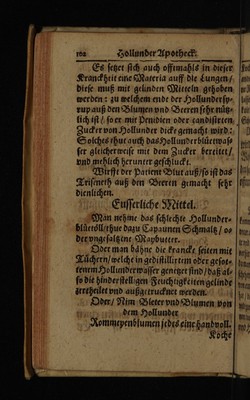 102 Hollunder Apotheck.
Es setzet sich auch offtmahls in dieser
Kranckheit eine Materia auff die Lungen/
diese muß mit gelinden Mitteln gehoben
werden: zu welchem ende der Hollundersy-
rup auß den Blumen und Beeren sehr nütz-
lich ist/ so er mit Penidien oder candisirten
Zucker von Hollunder dicke gemacht wird:
Solches thut auch das Hollunderblütwas-
ser gleicherweise mit dem Zucker bereitet/
und mehlich herunter geschluckt.
Wirfft der Patient Blut auß/ so ist das
Triseneth auß den Beeren gemacht sehr
dienlichen.
Eusserliche Mittel.
Man nehme das schlechte Hollunder-
blütöll/ thue dazu Capaunen Schmaltz/ o-
der ungesaltzne Maybutter.
Oder man bähne die krancke seiten mit
Tüchern/ welche in gedistillirtem oder gesot-
tenem Hollunderwasser genetzet sind/ daß al-
so die hinderstelligen Feuchtigkeiten gelinde
zertheilet und außgetrucknet werden.
Oder/ Nim Bleter und Blumen von
dem Hollunder
Rommeyenblumen jedes eine handvoll.
Koche